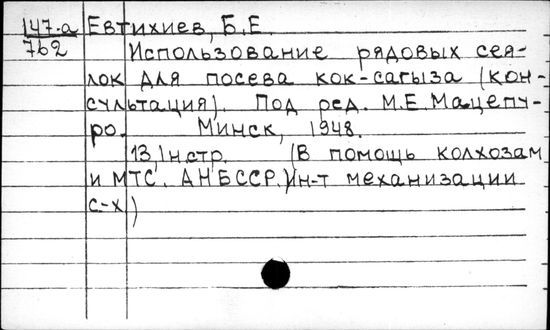 147-а Евтихиев, Б.Е.
762 Использование рядовых сея-
лок для посева кок-сагыза (кон-
сультация). Под ред. М.Е. Мацепу-
ро. Минск, 1948.
13, 1н.стр. (В помощь колхозам
и МТС. АН БССР. Ин-т механизации
с-х)